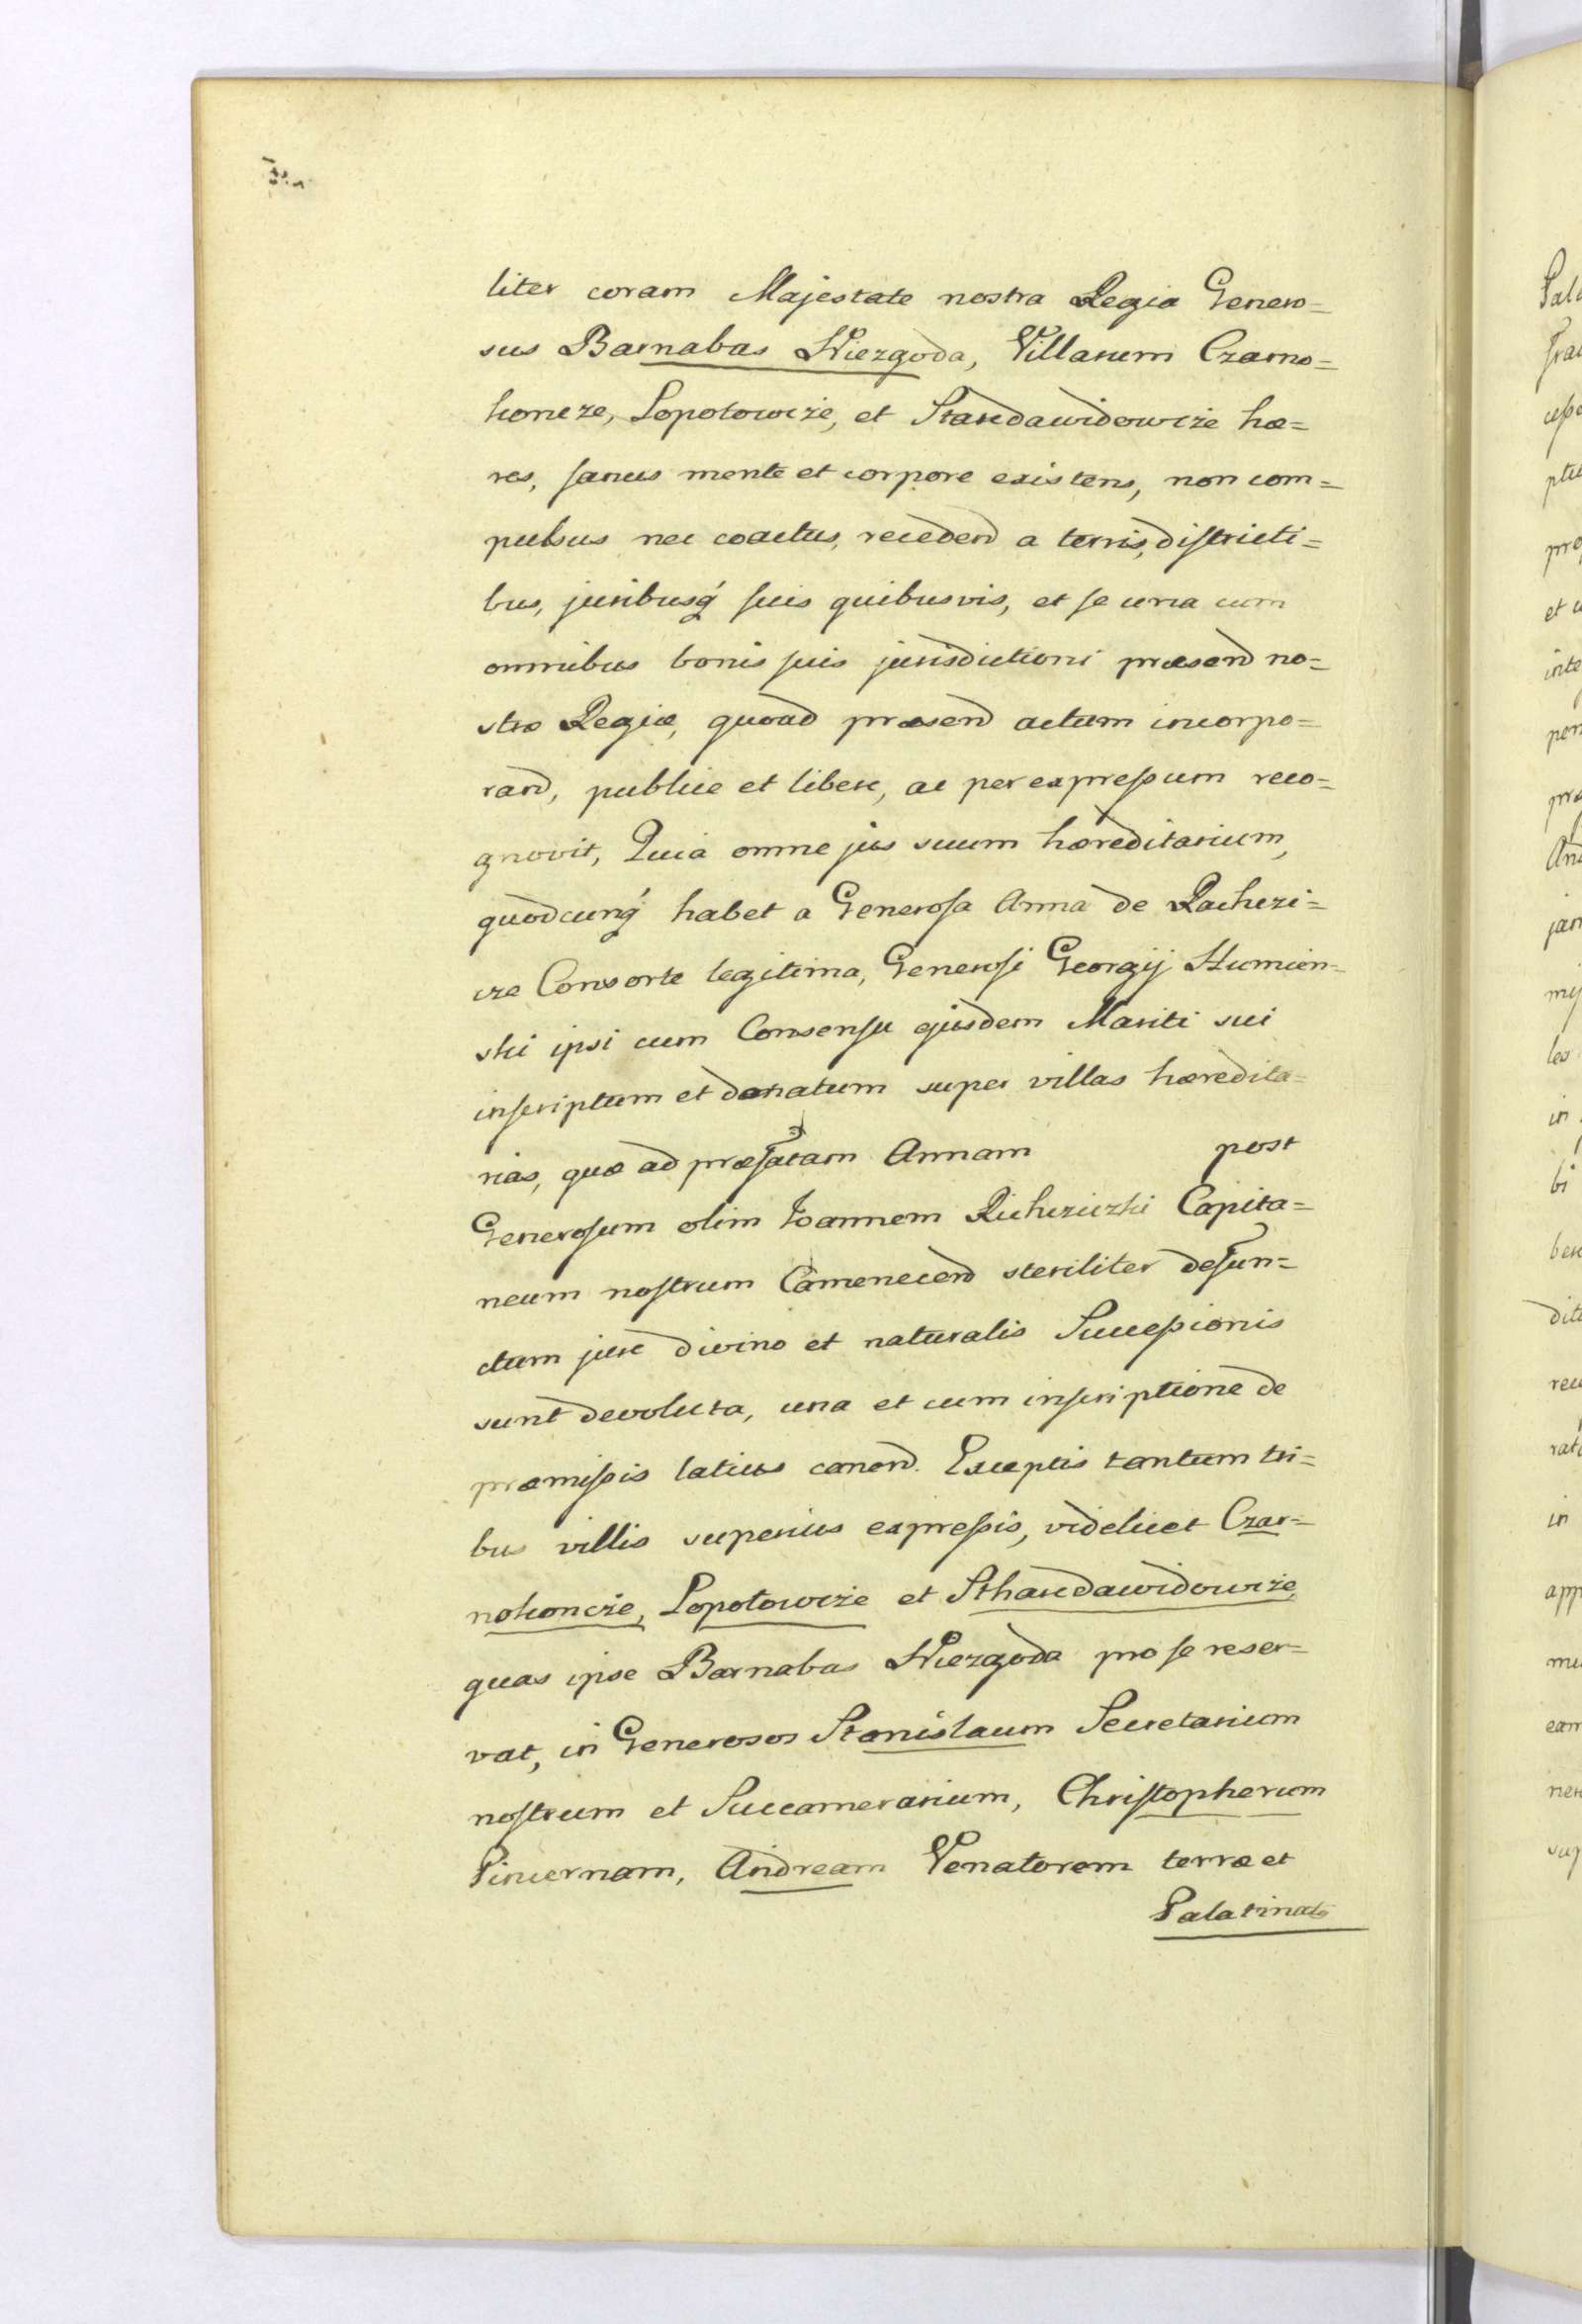 liter coram Majestate nostra Regia Genero=
sus Barnabas Niezgoda, Villarum Czarno=
koncze, Lopotowcze, et Staredawidowcze hæ=
res, sanus mente et corpore existens, non com=
pulsus nec coactus, recedend a terris, districti=
bus, juribusq́ suis quibusvis, et se una cum
omnibus bonis suis jurisdictioni præsend no=
stræ Regiæ, quoad præsend actum incorpo=
rand, publice et libere, ac per expressum reco=
gnovit, Quia omne jus suum hæreditarium,
quodcunq́ habet a Generosa Anna de Rachczi=
cze Consorte legitima, Generosi Georgij Humien=
ski ipsi cum Consensu ejusdem Mariti sui
inscriptum et donatum super villas hæredita=
rias, quæ ad præfatam Annam post
Generosum olim Joannem Richcziczki Capita=
neum nostrum Camenecend steriliter defun=
ctum jure divino et naturalis Successionis
sunt devoluta, una et cum inscriptione de
præmissis latius canend. Exceptis tantum tri=
bus villis superius expressis, videlicet Czar=
nokoncze, Lopotowcze et Stharedawidowcze,
quas ipse Barnabas Niezgoda pro se reser=
vat, in Generosos Stanislaum Secretarium
nostrum et Succamerarium, Christopherum
Pincernam, Andream Venatorem terræ et
Palatinats